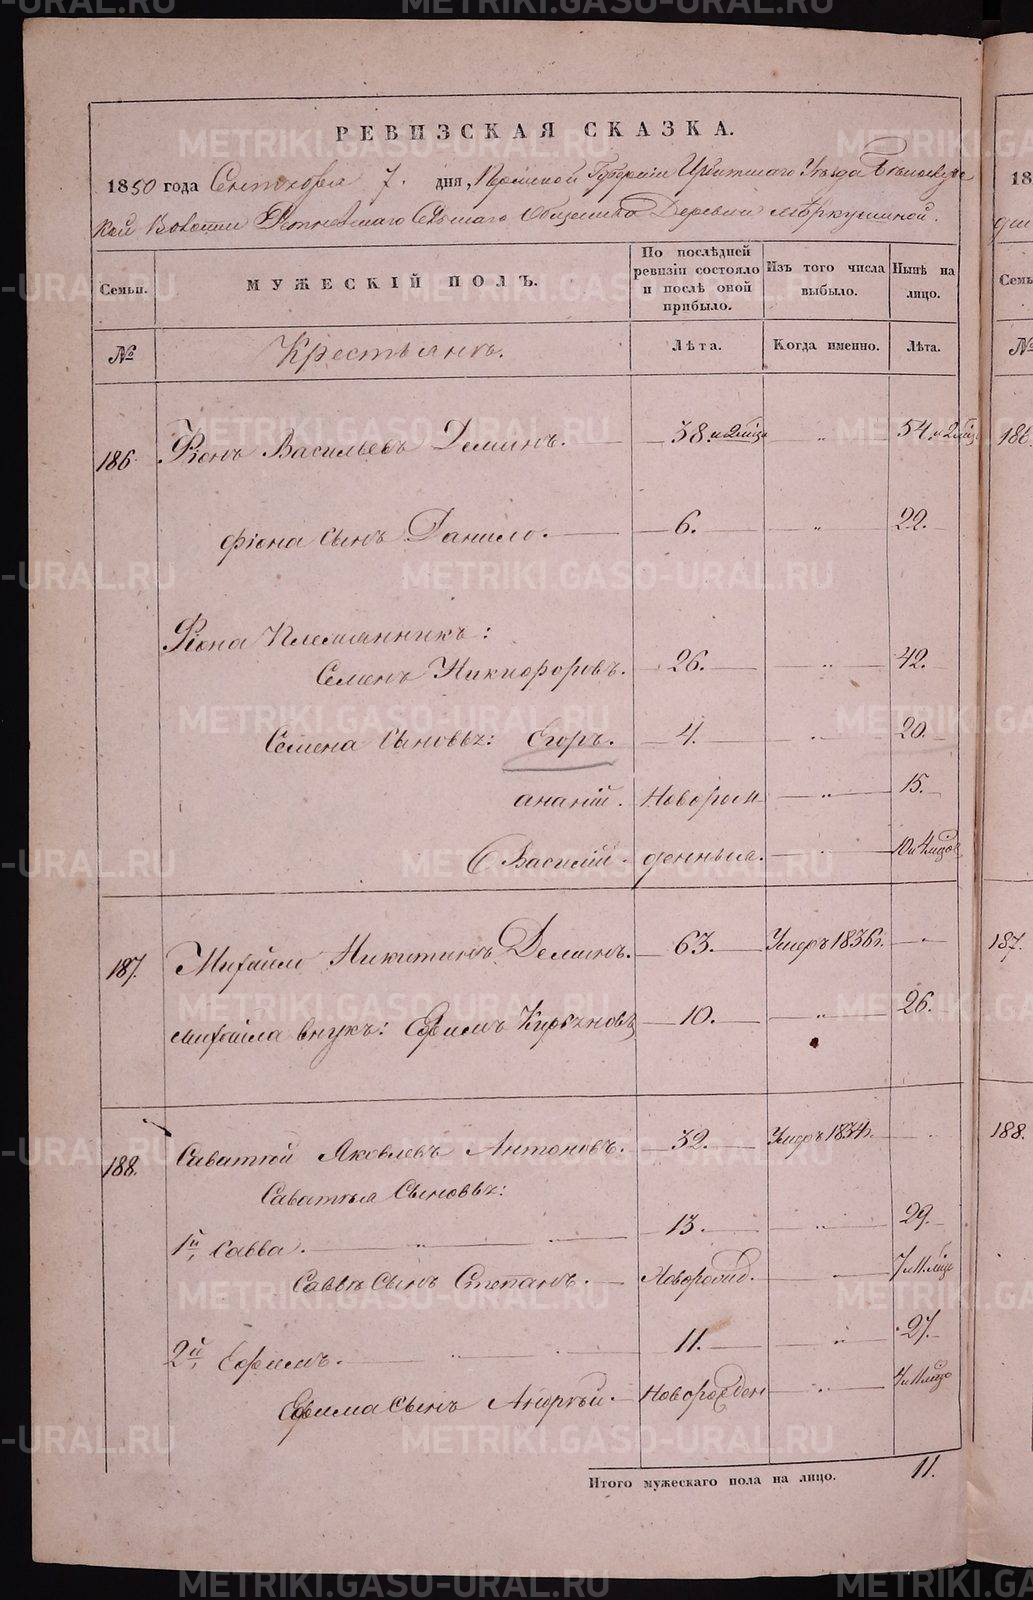 РЕВИЗСКАЯ СКАЗКА.
1850 года Сентября 7. дня, Пермской Губернiи Ирбитскаго Уѣзда
кой Волости Сельскаго Общества Деревни Меркушиной.
Семьи.
МУЖЕСКIЙ ПОЛЪ.
По послѣдней ревизiи состояло и послѣ оной прибыло.
Изъ того числа выбыло.
Нынѣ на лицо.
№
Крестьянъ.
Лѣта.
Когда именно.
Лѣта.
186. Фiонъ Васильевъ Деминъ. 38. и 2 мѣсц „ 54 и 2 мѣсц
Фiона сынъ Данило. 6. „ 22.
Фiона Племянникъ:
Семенъ Никифоровъ. 26. „ 42.
Семена Сыновья: Егоръ. 4. „ 20.
Ананiй. Новорож „ 15.
Василiй. денныя. „ 10 и 4 мѣсц
187. Михайло Никитинъ Деминъ. 63. Умеръ 1836 г. „
Михайла внукъ: Ефимъ 10. „ 26.
188. Саватей Яковлевъ Антоновъ. 32. Умеръ 1834 г. „
Саватея Сыновья:
1й, Савва. „ 13. „ 29.
Саввы сынъ Степанъ. Новорожд. „ 7 и 11 мѣсц
2й, Ефимъ. „ 11. „ 27.
Ефима сынъ Андрей. Новорожден „ 4 и 11 мѣсц
Итого мужескаго пола на лицо. 11.
18
Семь
№
186
187.
188.
METRIKI.GASO-URAL.RU